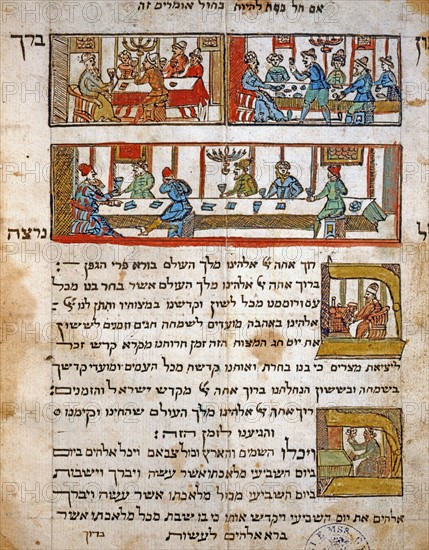 אם חל פסח להיות בחול אומרים זה
ברך
נרצה
רוך אתה יי אלהינו מלך העולם בורא פרי הגפן:
רוך אתה יי אלהינו מלך העולם אשר בחר בנו מכל
עם ורוממנו מכל לשון וקדשנו במצותיו ותתן לנו יי
אלהינו באהבה מועדים לשמחה חגים וזמנים לששון
את יום חג המצות הזה זמן חרותנו מקרא קדש זכר
ליציאת מצרים כי בנו בחרת ואותנו קדשת מכל העמים ומועדי קדשך
בשמחה ובששון הנחלתנו ברוך אתה יי מקדש ישראל והזמנים:
רוך אתה יי אלהינו מלך העולם שהחיינו וקימנו
והגיענו לזמן הזה:
ויכלו השמים והארץ וכל צבאם ויכל אלהים ביום
ביום השביעי מלאכתו אשר עשה ויברך וישבות
ביום השביעי מכל מלאכתו אשר עשה ויברך
אלהים את יום השביעי ויקדש אותו כי בו שבת מכל מלאכתו אשר
ברא אלהים לעשות
ברוך